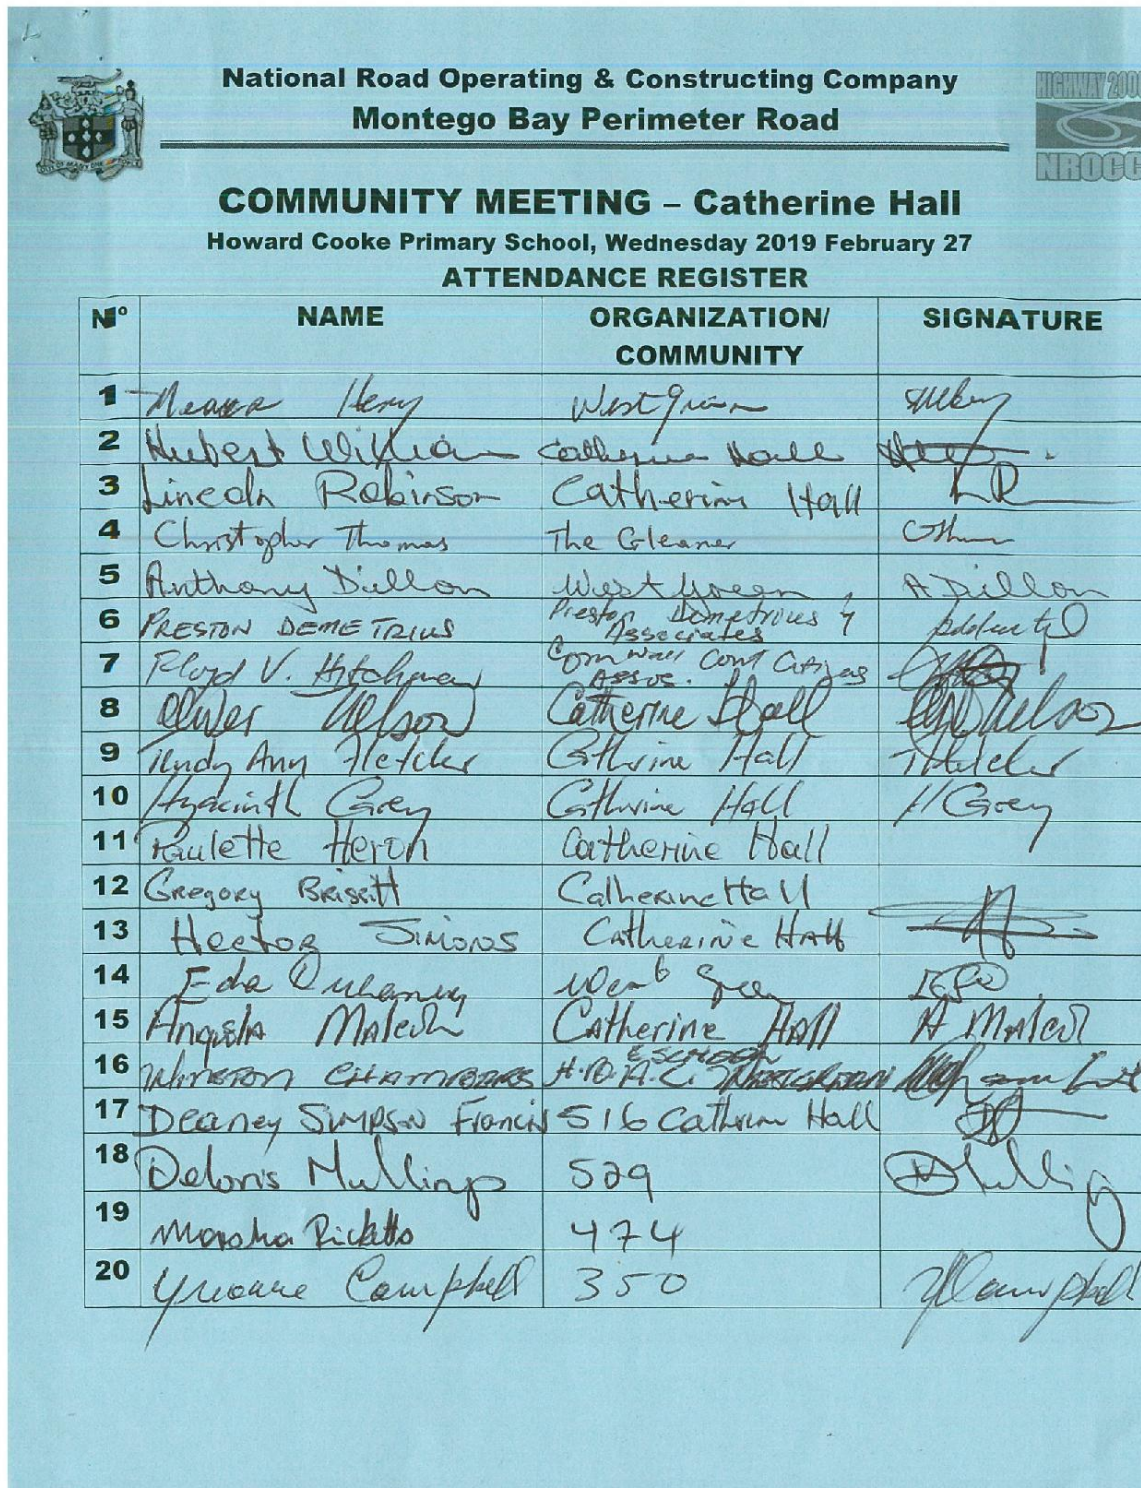 National Road Operating & Constructing Company
HIGHWAY 2000
Montego Bay Perimeter Road
NROCC
COMMUNITY MEETING – Catherine Hall
Howard Cooke Primary School, Wednesday 2019 February 27
ATTENDANCE REGISTER
Nº NAME ORGANIZATION/ COMMUNITY SIGNATURE
1 Henry West Green
2 Hubert William Catherine Hall
3 Lincoln Robinson Catherine Hall LR
4 Christopher Thomas The Gleaner
5 Anthony Dillon West Green A Dillon
6 PRESTON DEMETRIUS Preston Demetrius & Associates
7 Floyd V. Hitchman Cornwall Cont Citizens Assos.
8 Oliver Nelson Catherine Hall Nelson
9 Trudy Ann Fletcher Cathrine Hall TFletcher
10 Hyacinth Grey Cathrine Hall H Grey
11 Paulette Heron Catherine Hall
12 Gregory Brissett Catherine Hall
13 Hector Simons Catherine Hall
14 Eda Duhaney West Green
15 Angela Malcolm Catherine Hall A Malcol
16 Winston Chambers
17 Deaney Simpson Francis 516 Cathrine Hall
18 Deloris Mullings 529
19 Marsha Ricketts 474
20 Yvonne Campbell 350 YCampbell